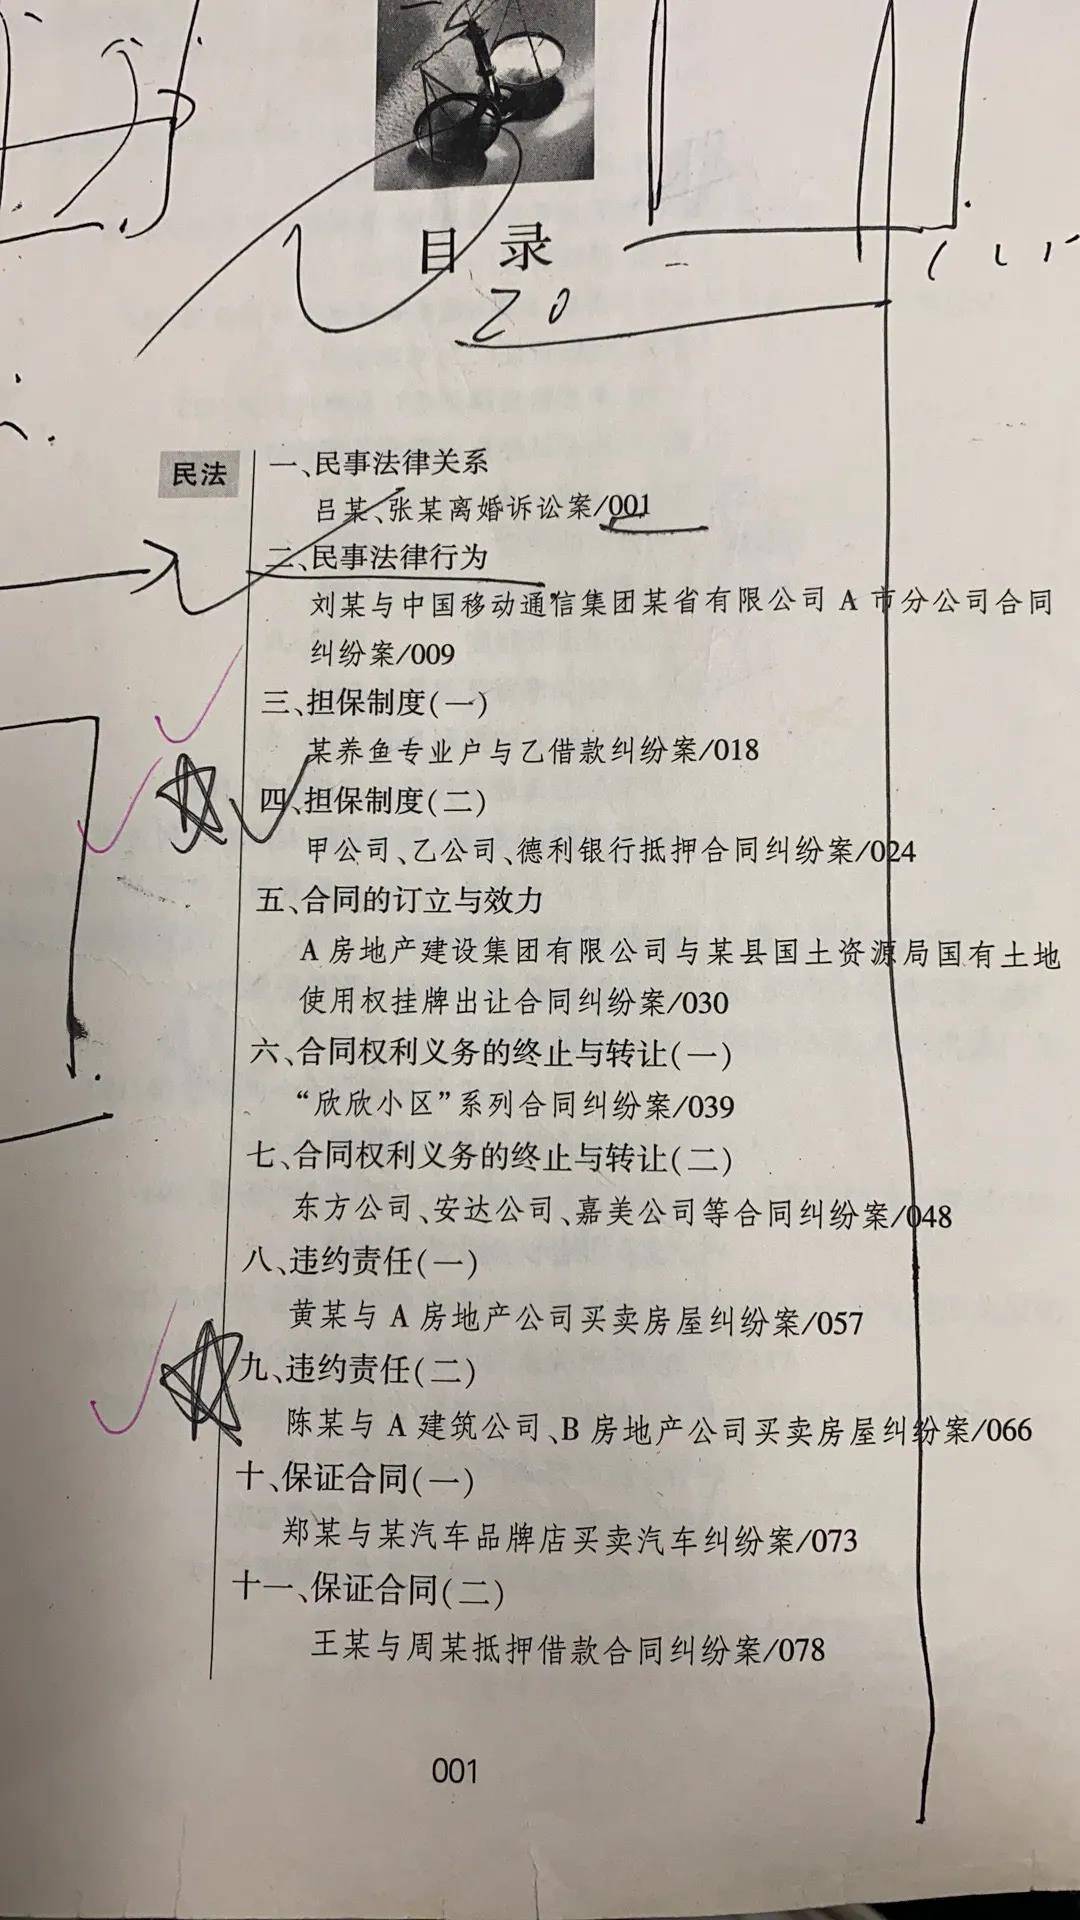 目 录
20
民法
一、民事法律关系
吕某、张某离婚诉讼案/001
二、民事法律行为
刘某与中国移动通信集团某省有限公司 A 市分公司合同
纠纷案/009
三、担保制度(一)
某养鱼专业户与乙借款纠纷案/018
四、担保制度(二)
甲公司、乙公司、德利银行抵押合同纠纷案/024
五、合同的订立与效力
A 房地产建设集团有限公司与某县国土资源局国有土地
使用权挂牌出让合同纠纷案/030
六、合同权利义务的终止与转让(一)
“欣欣小区”系列合同纠纷案/039
七、合同权利义务的终止与转让(二)
东方公司、安达公司、嘉美公司等合同纠纷案/048
八、违约责任(一)
黄某与 A 房地产公司买卖房屋纠纷案/057
九、违约责任(二)
陈某与 A 建筑公司、B 房地产公司买卖房屋纠纷案/066
十、保证合同(一)
郑某与某汽车品牌店买卖汽车纠纷案/073
十一、保证合同(二)
王某与周某抵押借款合同纠纷案/078
001